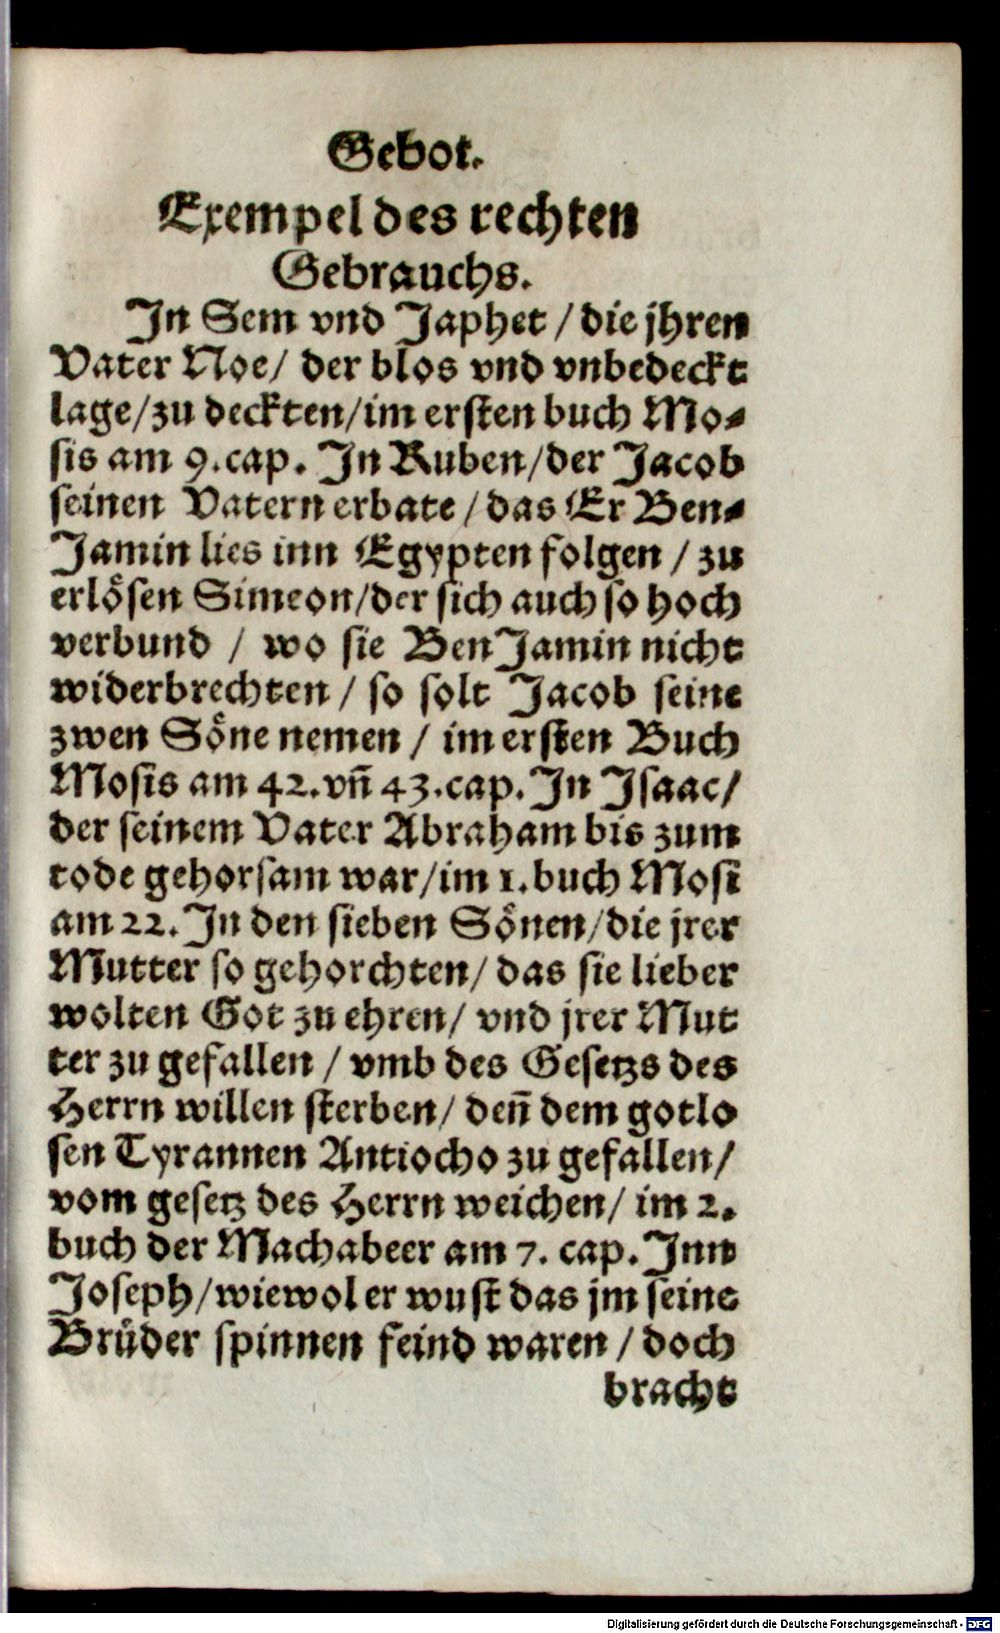 Gebot.
Exempel des rechten
Gebrauchs.
In Sem vnd Japhet / die jhren
Vater Noe / der blos vnd vnbedeckt
lage / zu deckten / im ersten buch Mo-
sis am 9. cap. In Ruben / der Jacob
seinen Vatern erbate / das Er Ben-
Jamin lies inn Egypten folgen / zu
erlösen Simeon / der sich auch so hoch
verbund / wo sie BenJamin nicht
widerbrechten / so solt Jacob seine
zwen Söne nemen / im ersten Buch
Mosis am 42. vñ 43. cap. In Isaac /
der seinem Vater Abraham bis zum
tode gehorsam war / im 1. buch Mosi
am 22. In den sieben Sönen / die jrer
Mutter so gehorchten / das sie lieber
wolten Got zu ehren / vnd jrer Mut
ter zu gefallen / vmb des Gesetzs des
Herrn willen sterben / deñ dem gotlo
sen Tyrannen Antiocho zu gefallen /
vom gesetz des Herrn weichen / im 2.
buch der Machabeer am 7. cap. Inn
Joseph / wiewol er wust das jm seine
Brüder spinnen feind waren / doch
bracht
Digitalisierung gefördert durch die Deutsche Forschungsgemeinschaft - DFG